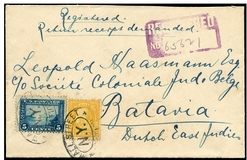 Registered.
Return receipt demanded.
REGISTERED
No
Leopold Haasmann Esq
c/o Société Coloniale Indo Belge
Batavia
Dutch East Indies
5